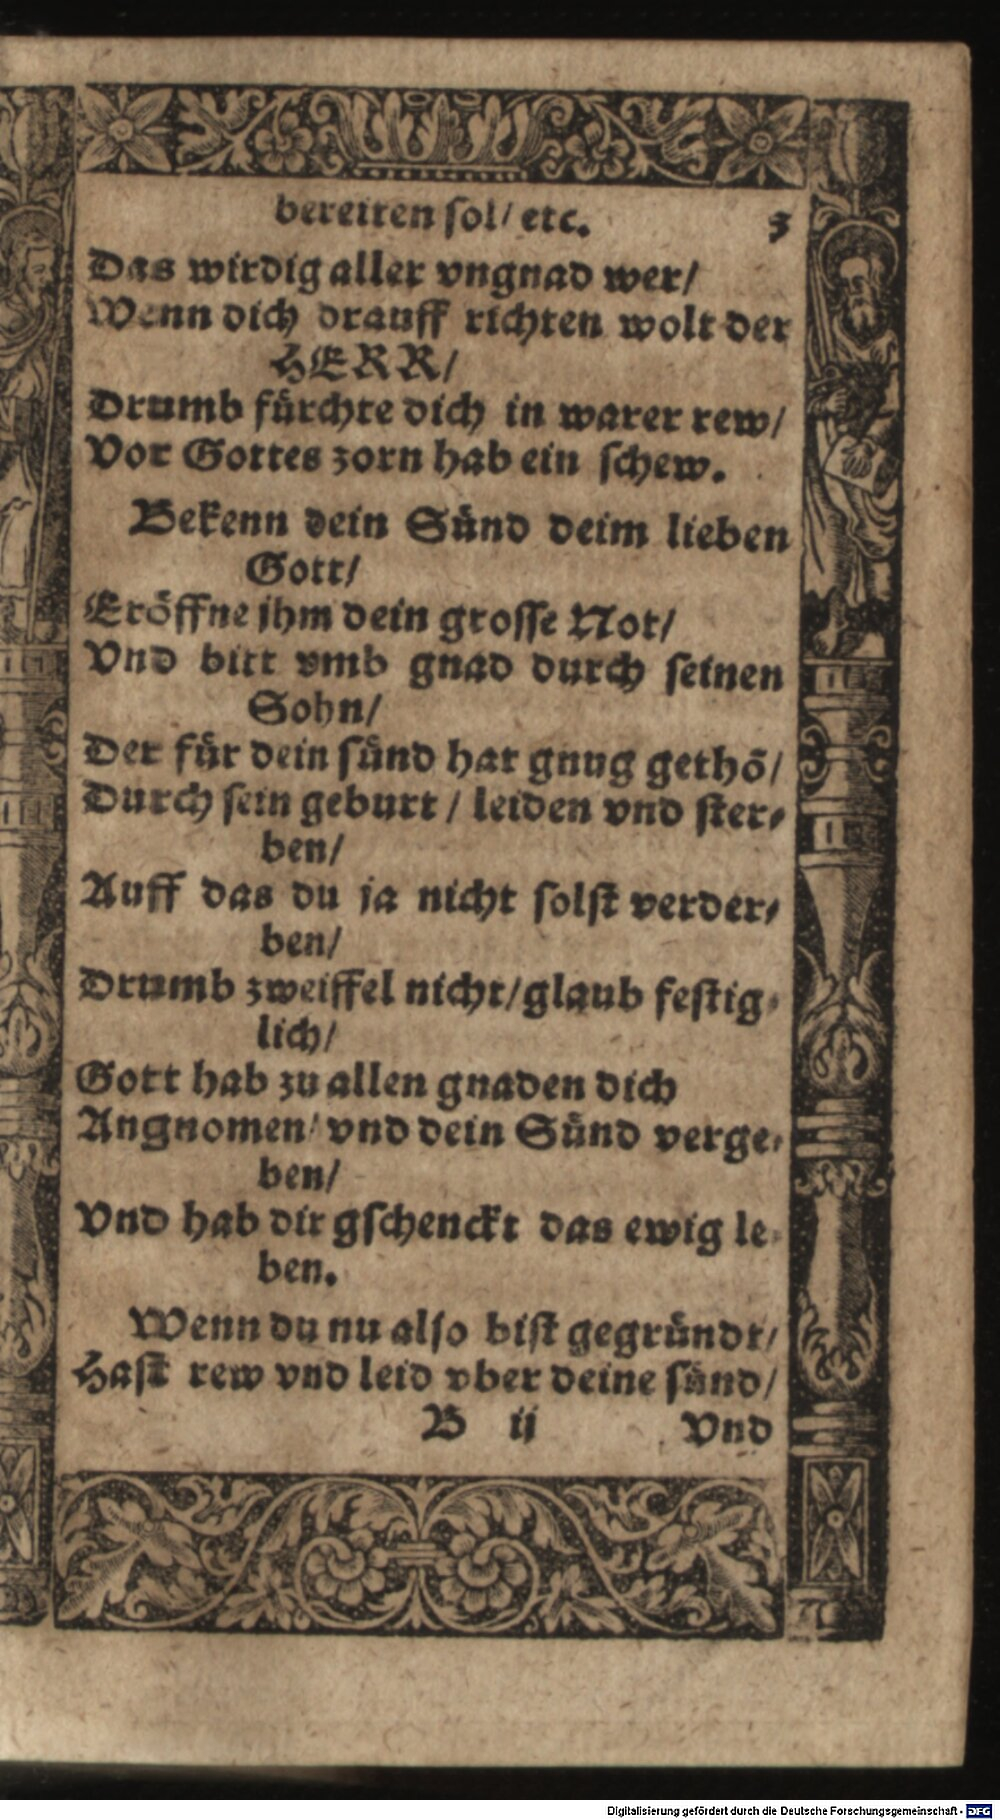 bereiten sol/ etc. 3
Das wirdig aller vngnad wer/
Wenn dich drauff richten wolt der
HERR/
Drumb fürchte dich in warer rew/
Vor Gottes zorn hab ein schew.
Bekenn dein Sünd deim lieben
Gott/
Eröffne jhm dein grosse Not/
Vnd bitt vmb gnad durch seinen
Sohn/
Der für dein sünd hat gnug gethõ/
Durch sein geburt / leiden vnd ster-
ben/
Auff das du ja nicht solst verder-
ben/
Drumb zweiffel nicht/ glaub festig-
lich/
Gott hab zu allen gnaden dich
Angnomen/ vnd dein Sünd verge-
ben/
Vnd hab dir gschenckt das ewig le-
ben.
Wenn du nu also bist gegründt/
Hast rew vnd leid vber deine sünd/
B ij Vnd
Digitalisierung gefördert durch die Deutsche Forschungsgemeinschaft - DFG